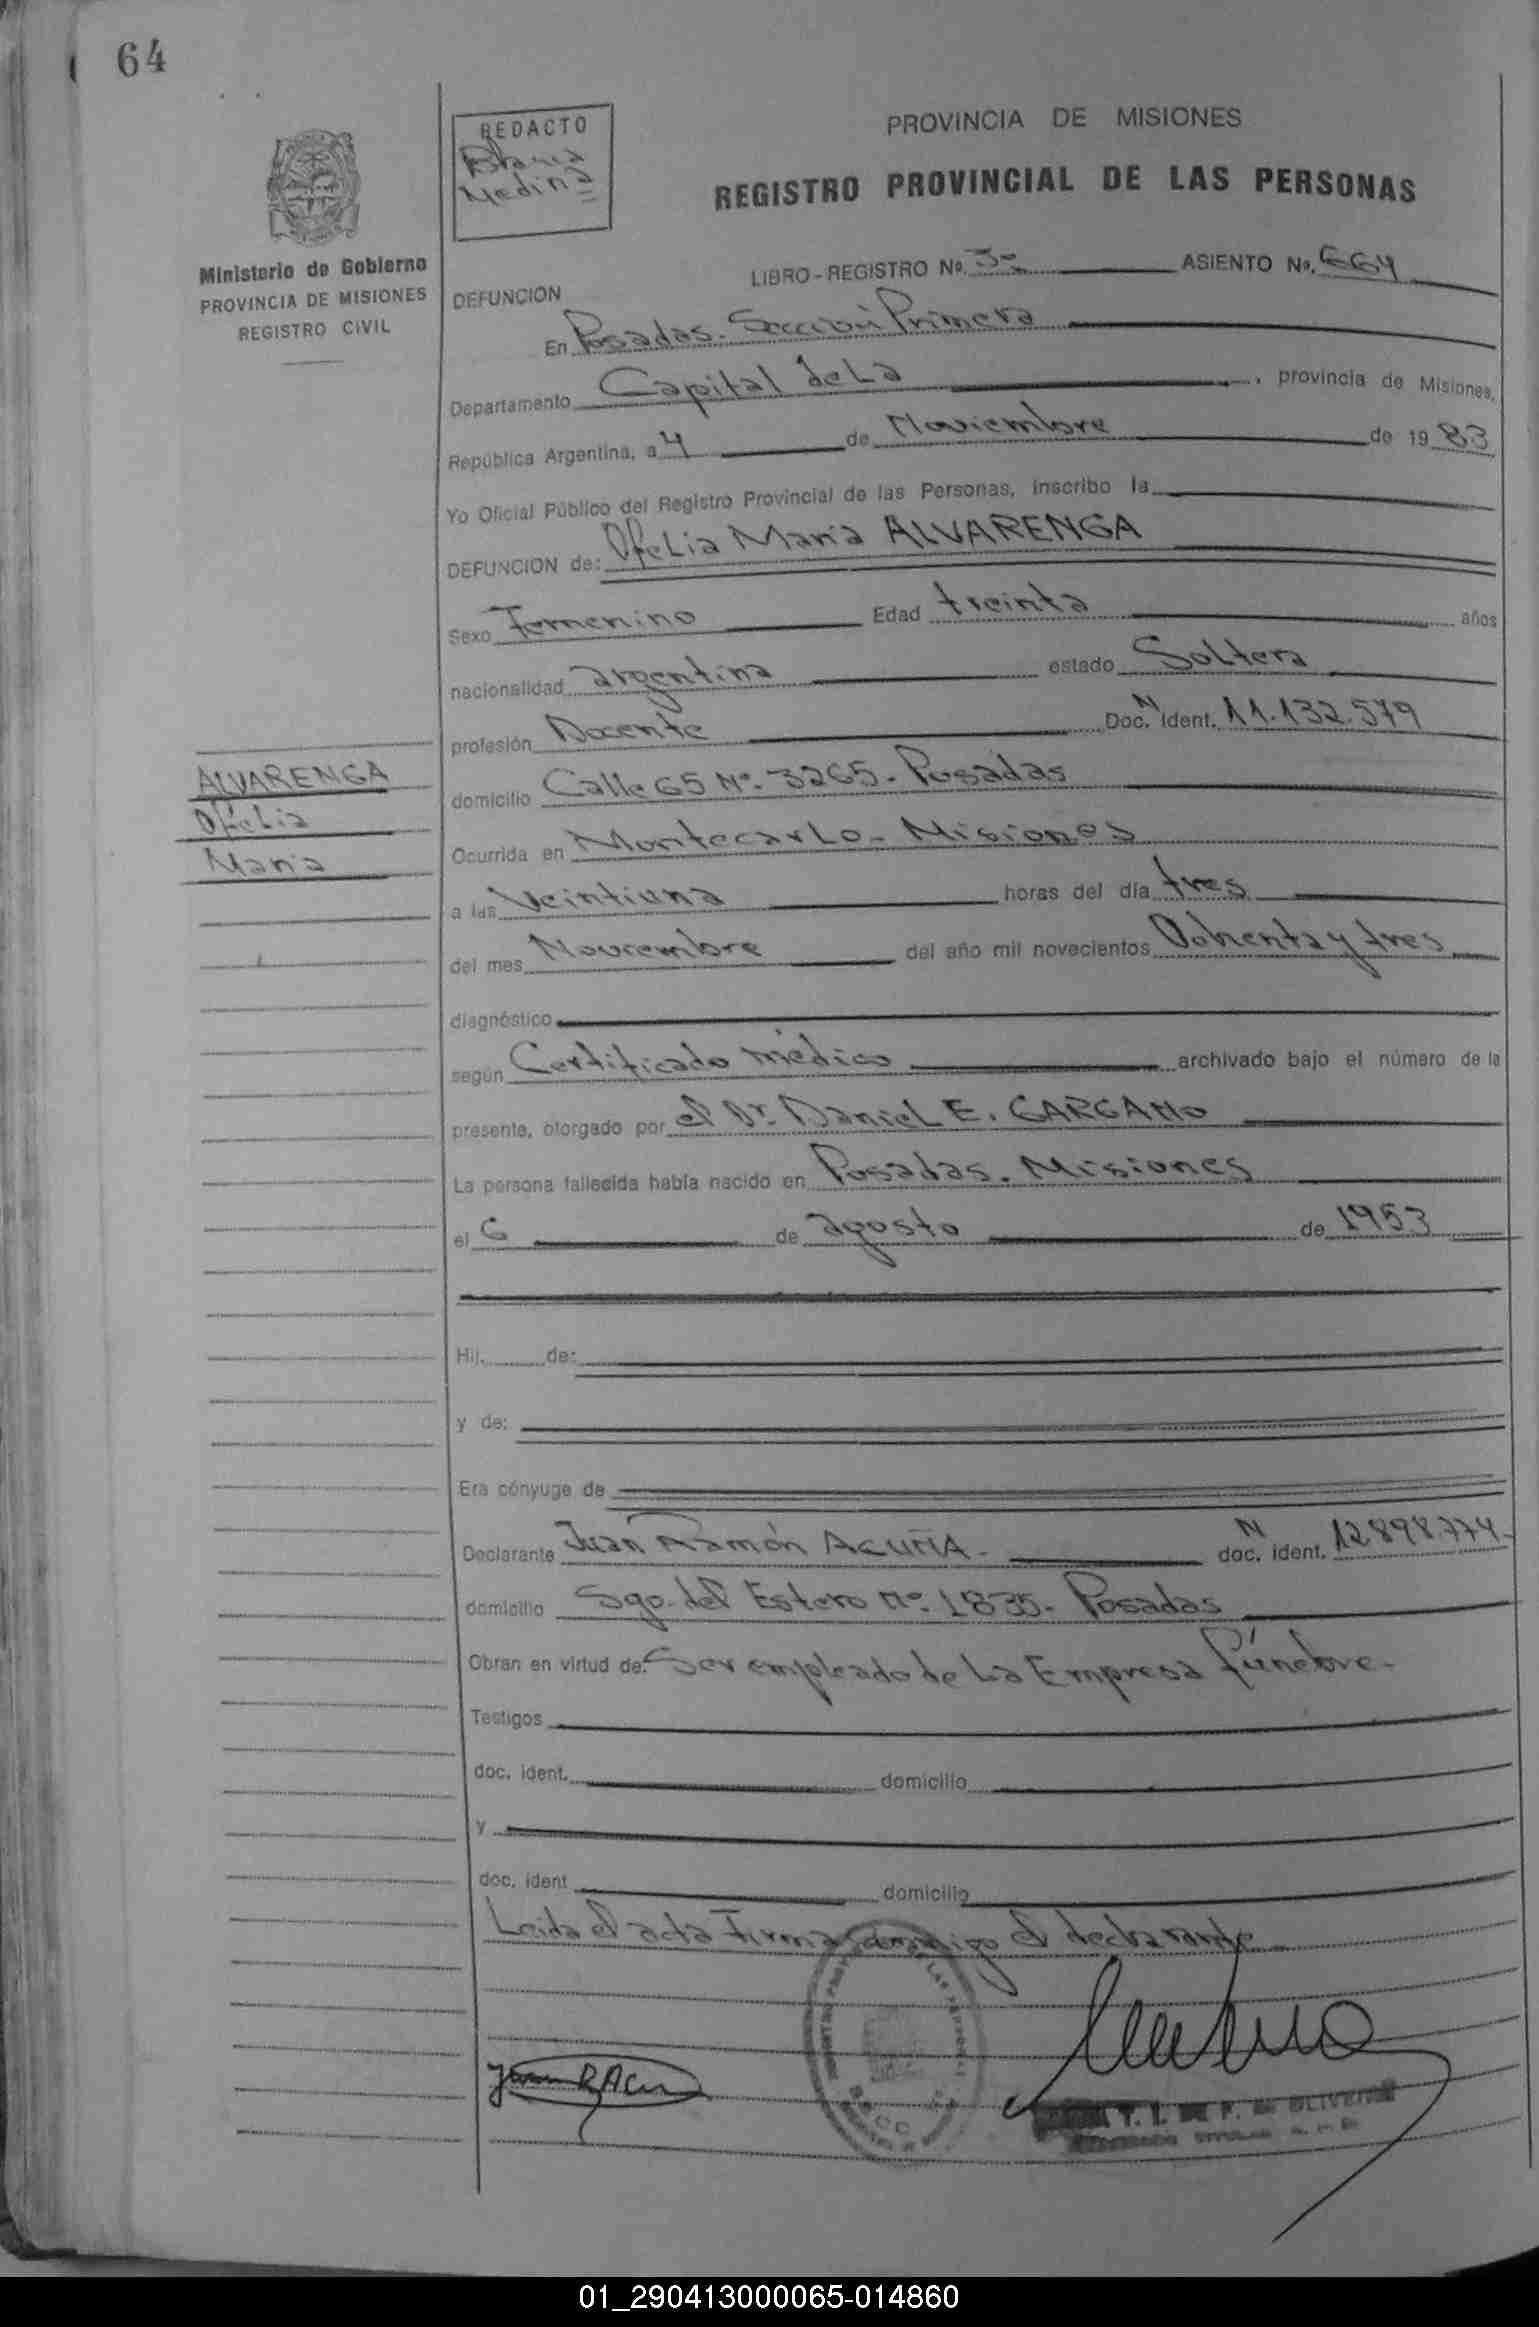 64
REDACTO
Blanca
Medina
PROVINCIA DE MISIONES
REGISTRO PROVINCIAL DE LAS PERSONAS
Ministerio de Gobierno
PROVINCIA DE MISIONES
REGISTRO CIVIL
LIBRO-REGISTRO Nº. 3º ASIENTO Nº. 664
DEFUNCION
En Posadas. Sección Primera
Departamento Capital de La, provincia de Misiones,
República Argentina, a 4 de Noviembre de 1983
Yo Oficial Público del Registro Provincial de las Personas, inscribo la
DEFUNCION de: Ofelia María ALVARENGA
Sexo Femenino Edad treinta años
nacionalidad argentina estado Soltera
profesión Docente Doc. N Ident. 11.132.579
ALVARENGA
Ofelia
María
domicilio Calle 65 Nº. 3265. Posadas
Ocurrida en Montecarlo - Misiones
a las Veintiuna horas del día tres
del mes Noviembre del año mil novecientos Ochenta y tres
diagnóstico
según Certificado médico archivado bajo el número de la
presente, otorgado por el Dr. Daniel E. GARGANO
La persona fallecida había nacido en Posadas. Misiones
el 6 de agosto de 1953
Hij. de:
y de:
Era cónyuge de
Declarante Juan Ramón ACUÑA - doc. N ident. 12.898.774.
domicilio Sgo. del Estero nº. 1835. Posadas
Obran en virtud de: Ser empleado de La Empresa fúnebre.
Testigos
doc. ident. domicilio
y
doc. ident domicilio
Leida el acta Firma conmigo el declarante
01_290413000065-014860